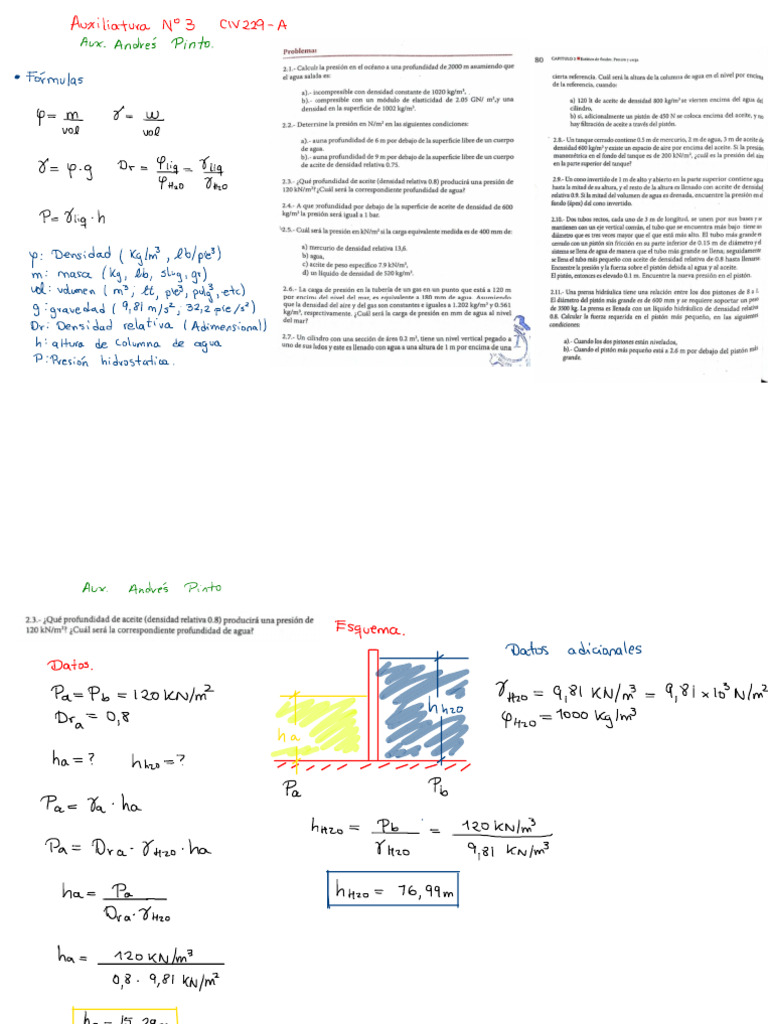 Auxiliatura Nº3 CIV229-A
Aux. Andrés Pinto.
• Fórmulas
φ = m/vol γ = w/vol
γ = φ·g Dr = φliq/φH2O = γliq/γH2O
P = γliq·h
φ: Densidad (Kg/m³, lb/pie³)
m: masa (Kg, lb, slug, gr)
vol: volumen (m³, lt, pie³, pulg³, etc)
g: gravedad (9,81 m/s², 32,2 pie/s²)
Dr: Densidad relativa (Adimensional)
h: altura de columna de agua
P: Presión hidrostatica.
Problemas
2.1.- Calcule la presión en el océano a una profundidad de 2000 m asumiendo que
el agua salada es:
a).- incompresible con densidad constante de 1020 kg/m³,
b).- compresible con un módulo de elasticidad de 2.05 GN/ m²,y una
densidad en la superficie de 1002 kg/m³.
2.2.- Determine la presión en N/m² en las siguientes condiciones:
a).- auna profundidad de 6 m por debajo de la superficie libre de un cuerpo
de agua.
b).- auna profundidad de 9 m por debajo de la superficie libre de un cuerpo
de agua de densidad relativa 0.75.
2.3.- ¿Qué profundidad de aceite (densidad relativa 0.8) producirá una presión de
120 kN/m²? ¿Cuál será la correspondiente profundidad de agua?
2.4.- A que profundidad por debajo de la superficie de aceite de densidad de 600
kg/m³ la presión será igual a 1 bar.
2.5.- Cuál será la presión en kN/m² si la carga equivalente medida es de 400 mm de:
a) mercurio de densidad relativa 13,6.
b) agua,
c) aceite de peso específico 7.9 kN/m³,
d) un líquido de densidad de 520 kg/m³.
2.6.- La carga de presión en la tubería de un gas en un punto que está a 120 m
por encima del nivel del mar, es equivalente a 180 mm de agua. Asumiendo
que la densidad del aire y del gas son constantes e iguales a 1.202 kg/m³ y 0.561
kg/m³, respectivamente. ¿Cuál será la carga de presión en mm de agua al nivel
del mar?
2.7.- Un cilindro con una sección de área 0.2 m², tiene un nivel vertical pegado a
uno de sus lados y este es llenado con agua a una altura de 1 m por encima de una
80 CAPITULO 2
cierta referencia. Cuál será la altura de la columna de agua en el nivel por encima
de la referencia, cuando:
a) 120 lt de aceite de densidad 800 kg/m³ se vierten encima del agua del
cilindro,
b) si, adicionalmente un pistón de 450 N se coloca encima del aceite, y no
hay filtración de aceite a través del pistón.
2.8.- Un tanque cerrado contiene 0.5 m de mercurio, 2 m de agua, 3 m de aceite
densidad 600 kg/m³ y existe un espacio de aire por encima del aceite. Si la presión
manométrica en el fondo del tanque es de 200 kN/m², ¿cuál es la presión del aire
en la parte superior del tanque?
2.9.- Un cono invertido de 1 m de alto y abierto en la parte superior contiene agua
hasta la mitad de su altura, y el resto de la altura es llenado con aceite de densidad
relativa 0.9. Si la mitad del volumen de agua es drenada, encuentre la presión en el
fondo (ápex) del cono invertido.
2.10.- Dos tubos rectos, cada uno de 3 m de longitud, se unen por sus bases y se
mantienen con un eje vertical común, el tubo que se encuentra más bajo tiene un
diámetro que es tres veces mayor que el que está más alto. El tubo más grande es
cerrado con un pistón sin fricción en su parte inferior de 0.15 m de diámetro y el
sistema se llena de agua de manera que el tubo más grande se llena; seguidamente
se llena el tubo más pequeño con aceite de densidad relativa de 0.8 hasta llenarse.
Encuentre la presión y la fuerza sobre el pistón debida al agua y al aceite.
El pistón, entonces es elevado 0.1 m. Encuentre la nueva presión en el pistón.
2.11.- Una prensa hidráulica tiene una relación entre los dos pistones de 8 a 1.
El diámetro del pistón más grande es de 600 mm y se requiere soportar un peso
de 3500 kg. La prensa es llenada con un líquido hidráulico de densidad relativa
0.8. Calcular la fuerza requerida en el pistón más pequeño, en las siguientes
condiciones:
a).- Cuando los dos pistones están nivelados,
b).- Cuando el pistón más pequeño está a 2.6 m por debajo del pistón más
grande.
Aux. Andrés Pinto
2.3.- ¿Qué profundidad de aceite (densidad relativa 0.8) producirá una presión de
120 kN/m²? ¿Cuál será la correspondiente profundidad de agua?
Esquema.
Datos.
Pa = Pb = 120 KN/m²
Dra = 0,8
ha = ? hh2o = ?
Pa = γa · ha
Pa = Dra · γH2O · ha
ha = Pa/(Dra · γH2O)
ha = 120 KN/m³/(0,8 · 9,81 KN/m²)
ha = 15,29m
ha
hh2o
Pa
Pb
Datos adicionales
γH2O = 9,81 KN/m³ = 9,81 × 10³ N/m²
φH2O = 1000 Kg/m³
hH2O = Pb/γH2O = 120 KN/m³/9,81 KN/m³
hH2O = 76,99m